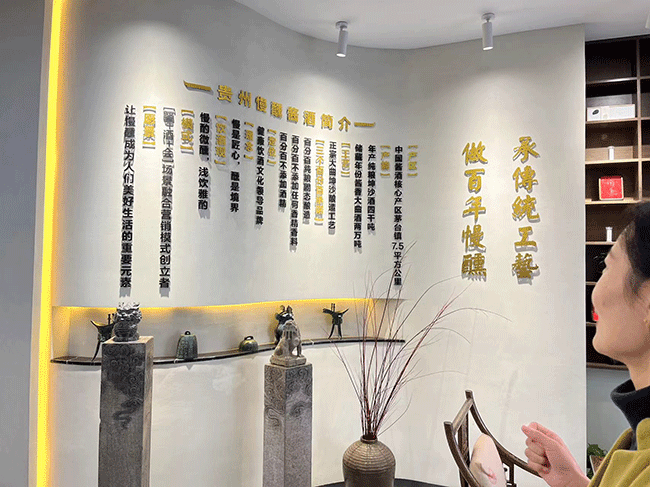 承傳統工藝
做百年慢醺
贵州慢醺酱酒简介
【产区】
中国酱酒核心产区茅台镇7.5平方公里
【产量】
年产纯粮坤沙酒四千吨
储藏年份酱香大曲酒两万吨
【工艺】
正宗大曲坤沙酿造工艺
百分百纯粮固态酿造
百分百不添加任何酒精香料
百分百不添加酒精
【定位】
健康饮酒文化领导品牌
【理念】
慢是匠心，醺是境界
慢酌微醺，浅饮雅酌
【模式】
【酱酒+会】场景融合营销模式创立者
【愿景】
让慢醺成为人们美好生活的重要元素